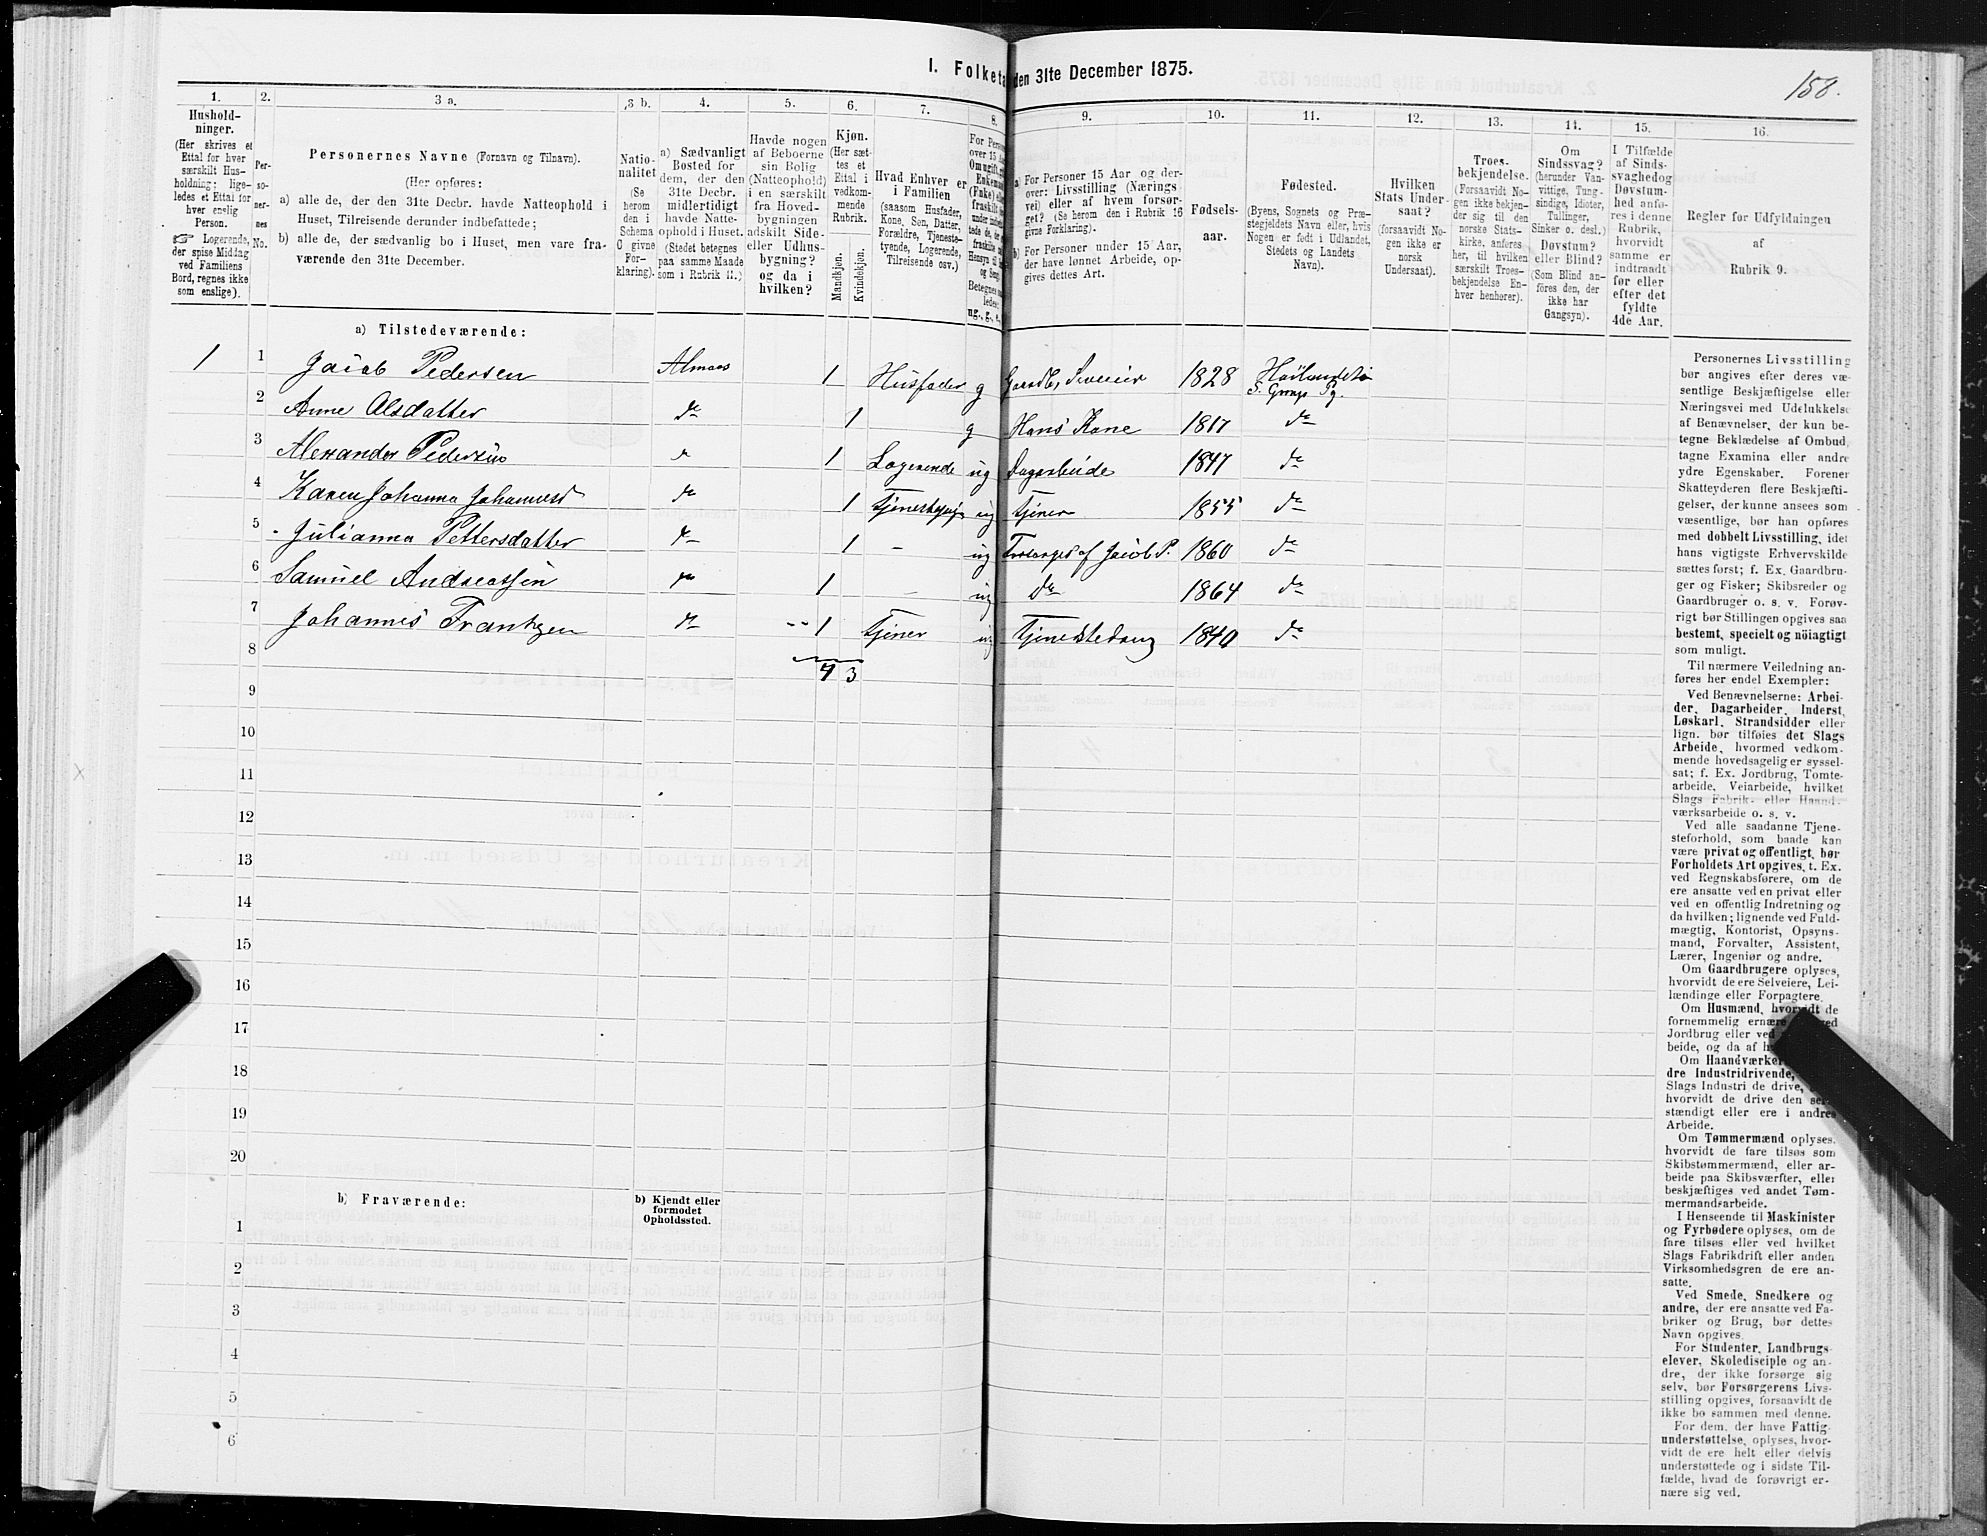 I. Folketæ
den 31te December 1875.
158.
1. 2. 3 a. 3 b. 4. 5. 6. 7. 8. 9. 10. 11. 12. 13. 14. 15. 16.
Hushold-
ninger.
(Her skrives et
Ettal for hver
særskilt Hus-
holdning; lige-
ledes et Ettal for
hver enslig
Person.
☞ Logerende,
der spise Middag
ved Familiens
Bord, regnes ikke
som enslige).
Per-
so-
ner-
nes
No.
Personernes Navne (Fornavn og Tilnavn).
(Her opføres:
a) alle de, der den 31te Decbr. havde Natteophold i
Huset, Tilreisende derunder indbefattede;
b) alle de, der sædvanlig bo i Huset, men vare fra-
værende den 31te December.
Natio-
nalitet
(Se
herom
den i
Schema
C givne
For-
klaring).
a) Sædvanligt
Bosted for
dem, der den
31te Decbr.
midlertidigt
havde Natte-
ophold i Huset.
(Stedet betegnes
paa samme Maade
som i Rubrik 11.)
Havde nogen
af Beboerne
sin Bolig
(Natteophold)
i en særskilt
fra Hoved-
bygningen
adskilt Side-
eller Udhus-
bygning?
og da i
hvilken?
Kjøn.
(Her sæt-
tes et
Ettal i
vedkom-
mende
Rubrik.
Mandkjøn.
Kvindekjøn.
Hvad Enhver er
i Familien
(saasom Husfader,
Kone, Søn, Datter,
Forældre, Tjeneste-
tyende, Logerende,
Tilreisende osv.)
For Perso
over 15 Aa
Om ugift, g
Enkema
(Enke) elle
fraskilt
Betegnes
ledes:
ug., g., e.,
a) For Personer 15 Aar og der-
over: Livsstilling (Nærings
vei) eller af hvem forsør-
get? (Se herom den i Rubrik 16
givne Forklaring).
b) For Personer under 15 Aar,
der have lønnet Arbeide, op-
gives dettes Art.
Fødsels-
aar.
Fødested.
(Byens, Sognets og Præ-
stegjeldets Navn eller, hvis
Nogen er født i Udlandet,
Stedets og Landets
Navn).
Hvilken
Stats Under-
saat?
(forsaavidt No-
gen ikke er
norsk
Undersaat).
Troes-
bekjendelse.
(Forsaavidt No-
gen ikke bekjen-
der sig til den
norske Stats-
kirke, anføres
her, til hvilken
særskilt Troes-
bekjendelse En-
hver henhører).
Om
Sindssvag?
(herunder Van-
vittige, Tung-
sindige, Idioter,
Tullinger,
Sinker o. desl.)
Døvstum?
eller Blind?
(Som Blind an-
føres den, der
ikke har
Gangsyn).
I Tilfælde
af Sinds-
svaghed og
Døvstum-
hed anfø-
res i denne
Rubrik,
hvorvidt
samme er
indtraadt
før eller
efter det
fyldte
4de Aar.
Regler for Udfyldningen
af
Rubrik 9.
a) Tilstedeværende:
1 1 Jacob Pedersen Almaas 1 Husfader g Gaardb, Seleier 1828
2 Anne Olsdatter do 1 g Hans Kone 1817 do
3 Alexander Pedersen do 1 Logerende ug Dagarbeide 1847 do
4 Karen Johanna Johannesd do 1 ug Tjener 1855 do
5 Julianna Pettersdatter do 1 – ug af Jacob P. 1860 do
6 Samuel Andreassen do 1 – ug do 1864 do
7 Johannes Frantzen do 1 Tjener ug 1840 do
8 4 3
9
10
11
12
13
14
15
16
17
18
19
20
b) Fraværende:
b) Kjendt eller
formodet
Opholdssted.
1
2
3
4
5
6
Personernes Livsstilling
bør angives efter deres væ-
sentlige Beskjæftigelse eller
Næringsvei med Udelukkelse
af Benævnelser, der kun be-
tegne Beklædelse af Ombud,
tagne Examina eller andre
ydre Egenskaber. Forener
Skatteyderen flere Beskjæfti-
gelser, der kunne ansees som
væsentlige, bør han opføres
med dobbelt Livsstilling, idet
hans vigtigste Erhvervskilde
sættes først; f. Ex. Gaardbru-
ger og Fisker; Skibsreder og
Gaardbruger o. s. v. Forøv-
rigt bør Stillingen opgives saa
bestemt, specielt og nöiagtigt
som muligt.
Til nærmere Veiledning an-
føres her endel Exempler:
Ved Benævnelserne: Arbei-
der, Dagarbeider, Inderst,
Løskarl, Strandsidder eller
lign. bør tilføies det Slags
Arbeide, hvormed vedkom-
mende hovedsagelig er syssel-
sat; f. Ex. Jordbrug, Tomte-
arbeide, Veiarbeide, hvilket
Slags Fabrik- eller Haand-
værksarbeide o. s. v.
Ved alle saadanne Tjene-
steforhold, som baade kan
være privat og offentligt, bør
Forholdets Art opgives, t. Ex.
ved Regnskabsførere, om de
ere ansatte ved en privat eller
ved en offentlig Indretning og
da hvilken; lignende ved Fuld-
mægtig, Kontorist, Opsyns-
mand, Forvalter, Assistent,
Lærer, Ingeniør og andre.
Om Gaardbrugere oplyses,
hvorvidt de ere Selveiere, Lei-
lændinge eller Forpagtere.
Om Husmænd, hvorvidt de
fornemmelig ernære
Jordbrug eller ved
beide, og da af
Om Haandværkere
dre Industridrivende,
Slags Industri de drive,
hvorvidt de drive den sel-
stændigt eller ere i andres
Arbeide.
Om Tømmermænd oplyses,
hvorvidt de fare tilsøs som
Skibstømmermænd, eller ar-
beide paa Skibsværfter, eller
beskjæftiges ved andet Tøm-
mermandsarbeide.
I Henseende til Maskinister
og Fyrbødere oplyses, om de
fare tilsøs eller ved hvilket
Slags Fabrikdrift eller anden
Virksomhedsgren de ere an-
satte.
Ved Smede, Snedkere og
andre, der ere ansatte ved Fa-
briker og Brug, bør dettes
Navn opgives.
For Studenter, Landbrugs-
elever, Skoledisciple og an-
dre, der ikke forsørge sig
selv, bør Forsørgerens Livs-
stilling opgives, forsaavidt de
ikke bo sammen med denne.
For dem, der have Fattig-
understøttelse, oplyses, hvor-
vidt de ere helt eller delvis
understøttede og i sidste Til-
fælde, hvad de forøvrigt er-
nære sig ved.